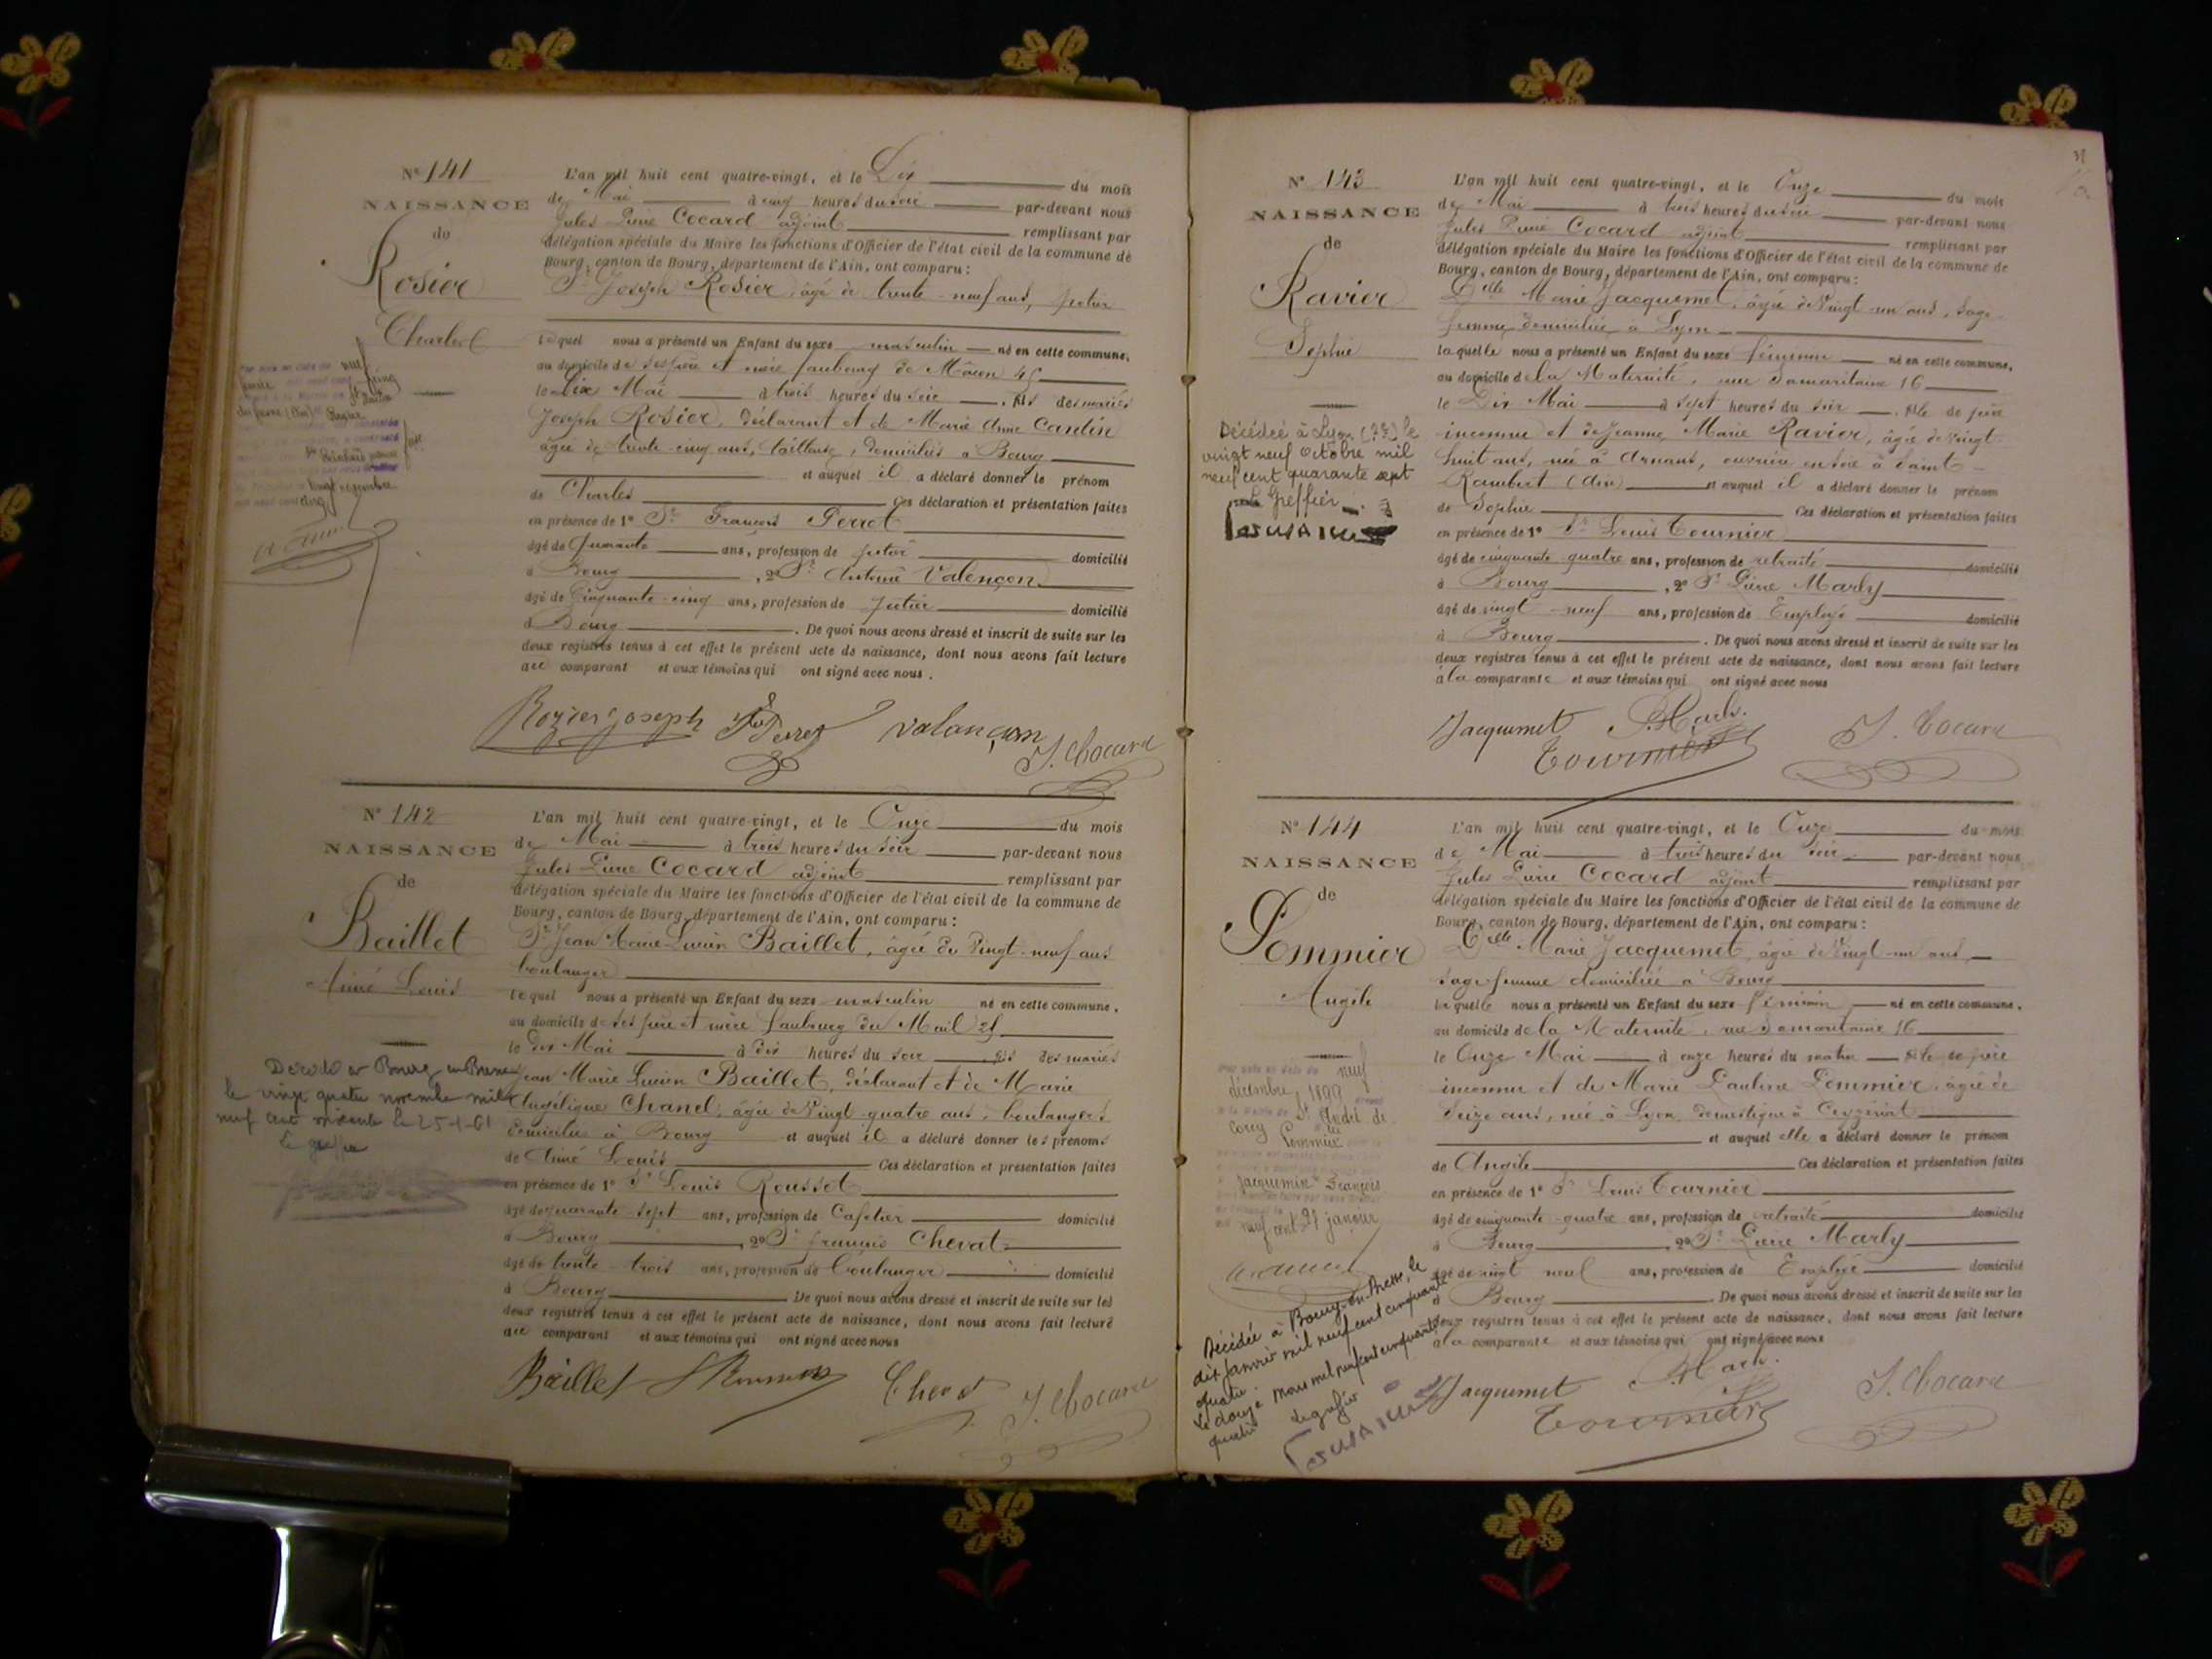 N° 141
NAISSANCE
de
Rosier
Charles
L'an mil huit cent quatre-vingt, et le Dix du mois
de Mai à cinq heures du soir par-devant nous
Jules Pierre Cocard adjoint remplissant par
délégation spéciale du Maire les fonctions d'Officier de l'état civil de la commune de
Bourg, canton de Bourg, département de l'Ain, ont comparu:
Sr Joseph Rosier, âgé de trente-neuf ans, potier
lequel nous a présenté un Enfant du sexe masculin né en cette commune,
au domicile de ses père et mère faubourg de Mâcon 45
le Dix Mai à trois heures du soir . fils des mariés
Joseph Rosier, déclarant et de Marie Anne Cantin
âgée de trente-cinq ans, tailleuse, domiciliés à Bourg
et auquel il a déclaré donner le prénom
de Charles Ces déclaration et présentation faites
en présence de 1° Sr François Perret
âgé de quarante ans, profession de potier domicilié
à Bourg , 2° Sr Antoine Valençon
âgé de Cinquante-cinq ans, profession de potier domicilié
à Bourg . De quoi nous avons dressé et inscrit de suite sur les
deux registres tenus à cet effet le présent acte de naissance, dont nous avons fait lecture
au comparant et aux témoins qui ont signé avec nous .
Rozier joseph Perret Valançon J. Cocard
N° 142
NAISSANCE
de
Baillet
Aimé Louis
Décédé à Bourg en Bresse
le vingt quatre novembre mil
neuf cent soixante le 25-1-61
Le greffier
L'an mil huit cent quatre-vingt, et le Onze du mois
de Mai à trois heures du soir par-devant nous
Jules Pierre Cocard adjoint remplissant par
délégation spéciale du Maire les fonctions d'Officier de l'état civil de la commune de
Bourg, canton de Bourg, département de l'Ain, ont comparu:
Sr Jean Marie Lucien Baillet, âgé de Vingt-neuf ans
boulanger
lequel nous a présenté un Enfant du sexe masculin né en cette commune,
au domicile de ses père et mère faubourg du Mail
le dix Mai à dix heures du soir . fils des mariés
Jean Marie Lucien Baillet, déclarant et de Marie
Angélique Chanel, âgée de Vingt-quatre ans, boulangers
domiciliés à Bourg et auquel il a déclaré donner les prénoms
de Aimé Louis Ces déclaration et présentation faites
en présence de 1° Sr Louis Rousset
âgé de quarante-sept ans, profession de Cafetier domicilié
à Bourg , 2° Sr François Chevat
âgé de trente-trois ans, profession de boulanger domicilié
à Bourg . De quoi nous avons dressé et inscrit de suite sur les
deux registres tenus à cet effet le présent acte de naissance, dont nous avons fait lecture
au comparant et aux témoins qui ont signé avec nous
Baillet Chevat J. Cocard
N° 143
NAISSANCE
de
Ravier
Sophie
Décédée à Lyon le
vingt neuf octobre mil
neuf cent quarante sept
Le Greffier
L'an mil huit cent quatre-vingt, et le Onze du mois
de Mai à trois heures du soir par-devant nous
Jules Pierre Cocard adjoint remplissant par
délégation spéciale du Maire les fonctions d'Officier de l'état civil de la commune de
Bourg, canton de Bourg, département de l'Ain, ont comparu:
Delle Marie Jacquemet, âgée de Vingt-un ans, sage-
femme domiciliée à Lyon
laquelle nous a présenté un Enfant du sexe féminin né en cette commune,
au domicile de la Maternité, rue Samaritaine 16
le Dix Mai à sept heures du soir . fille de père
inconnu et de Jeanne Marie Ravier, âgée de vingt-
huit ans, née à Arnans, ouvrière en soie à Saint-
Rambert (Ain) et auquel il a déclaré donner le prénom
de Sophie Ces déclaration et présentation faites
en présence de 1° Sr Louis Tournier
âgé de cinquante-quatre ans, profession de retraité domicilié
à Bourg , 2° Sr Pierre Marly
âgé de vingt-neuf ans, profession de Employé domicilié
à Bourg . De quoi nous avons dressé et inscrit de suite sur les
deux registres tenus à cet effet le présent acte de naissance, dont nous avons fait lecture
à la comparante et aux témoins qui ont signé avec nous
Jacquemet Marly J. Cocard
Tournier
N° 144
NAISSANCE
de
Pommier
Angèle
neuf
décembre 1899
St André de
Corcy
Pommier
Jacquemin François
neuf cent 21 janvier
Décédée à Bourg-en-Bresse, le
dix janvier mil neuf cent cinquante
quatre.
Le douze mars mil neuf cent cinquante
quatre Le greffier
L'an mil huit cent quatre-vingt, et le Onze du mois
de Mai à trois heures du soir par-devant nous
Jules Pierre Cocard adjoint remplissant par
délégation spéciale du Maire les fonctions d'Officier de l'état civil de la commune de
Bourg, canton de Bourg, département de l'Ain, ont comparu:
Delle Marie Jacquemet, âgée de Vingt-un ans,
sage femme domiciliée à Bourg
laquelle nous a présenté un Enfant du sexe féminin né en cette commune,
au domicile de la Maternité, rue Samaritaine 16
le Onze Mai à onze heures du matin fille de père
inconnu et de Marie Pauline Pommier, âgée de
Seize ans, née à Lyon, domestique à Ceyzériat
et auquel elle a déclaré donner le prénom
de Angèle Ces déclaration et présentation faites
en présence de 1° Sr Louis Tournier
âgé de cinquante-quatre ans, profession de retraité domicilié
à Bourg , 2° Sr Pierre Marly
âgé de vingt neuf ans, profession de Employé domicilié
à Bourg . De quoi nous avons dressé et inscrit de suite sur les
deux registres tenus à cet effet le présent acte de naissance, dont nous avons fait lecture
à la comparante et aux témoins qui ont signé avec nous
Jacquemet Marly J. Cocard
Tournier